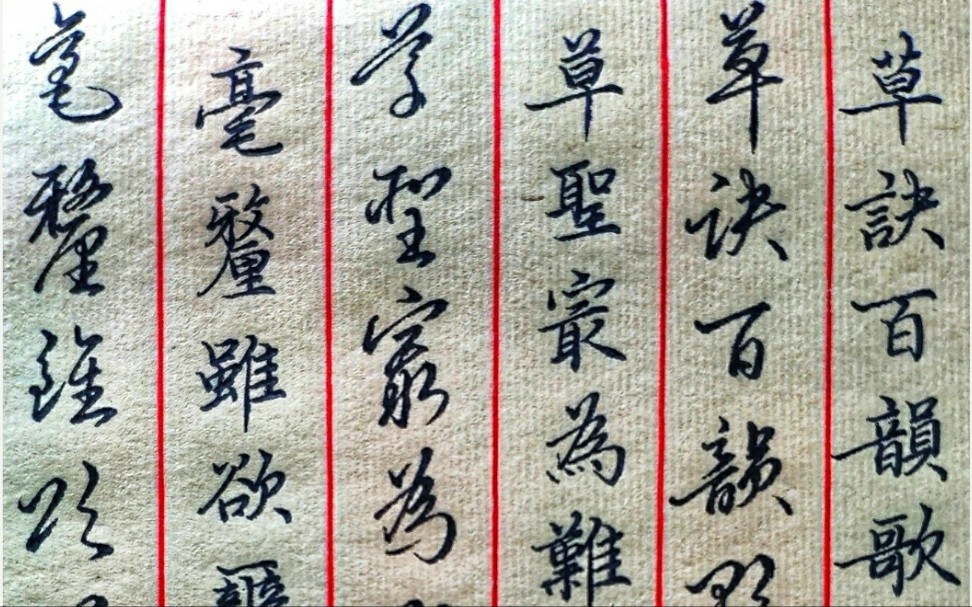 草訣百韻歌
草訣百韻
草聖最為難
草聖最為
毫釐雖欲
毫釐雖欲